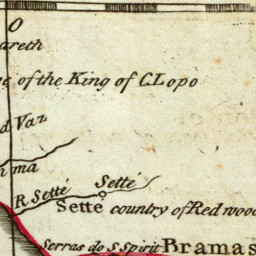 O
areth
e of the King of C. Lopo
d Vaz
ma
Setté
R. Setté
Setté country of Redwood
Serras do S Spirit Bramas